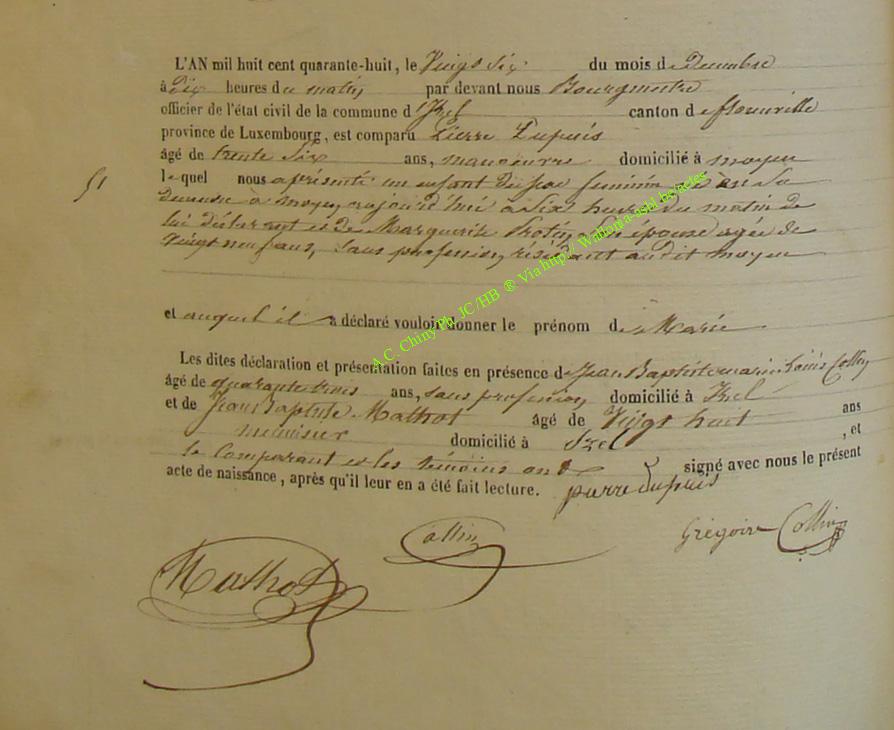 L'AN mil huit cent quarante-huit, le Vingt Six du mois de Decembre
à Dix heures du matin par devant nous Bourgmestre
officier de l'état civil de la commune d'Izel canton de florenville
province de Luxembourg, est comparu Pierre Dupuis
âgé de trente Six ans, manoeuvre domicilié à moyen
51
lequel nous a présenté un enfant du sexe feminin né en Sa
demeure a moyen aujourd'hui à Six heures du matin de
lui déclarant et de Marguerite Son épouse agée de
vingt neuf ans, Sans profession, résidant audit moyen
et auquel il a déclaré vouloir donner le prénom de Marie
Les dites déclaration et présentation faites en présence de Jean Baptiste marie Louis Collin
âgé de quarante trois ans, sans profession domicilié à Izel
et de Jean Baptiste Mathot âgé de Vingt huit ans
menuisier domicilié à Izel , et
le Comparant et les témoins ont signé avec nous le présent
acte de naissance, après qu'il leur en a été fait lecture. pierre dupuis
Collin Grégoire Collin
Mathot
A.C. Chiny Ph. JC/HB ® Via http:// Wallonia-asbl.be/actes